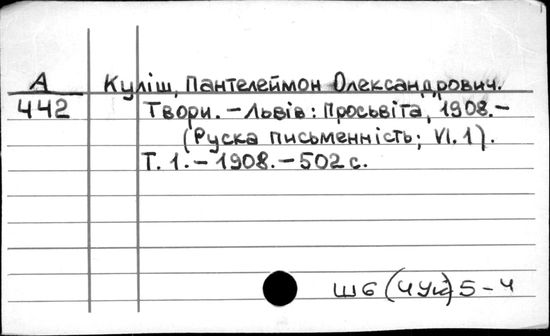 А Куліш, Пантелеймон Олександрович.
442 Твори. – Львів: Просьвіта, 1908. –
(Руска письменність; VI. 1).
Т. 1. – 1908. – 502 с.
Ш6 (4Ук) 5 – 4